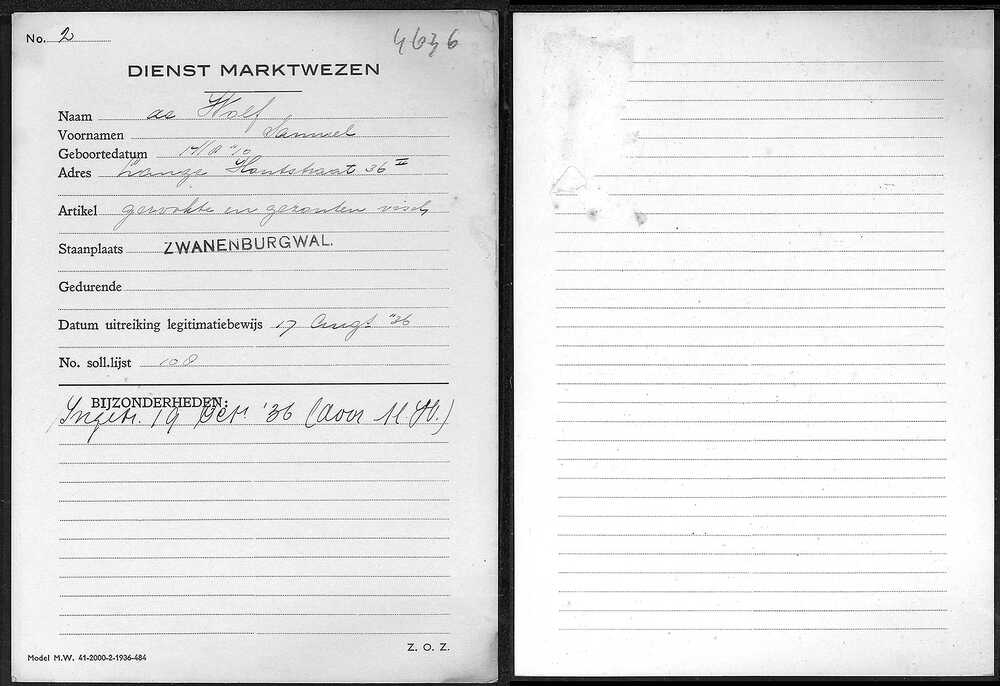 No. 2
4636
DIENST MARKTWEZEN
Naam de Wolf
Voornamen Samuel
Geboortedatum
Adres Lange Houtstraat 36 II
Artikel gerookte en gezouten visch
Staanplaats ZWANENBURGWAL.
Gedurende
Datum uitreiking legitimatiebewijs 17 Aug. '36
No. soll.lijst 108
BIJZONDERHEDEN:
Ingetr. 19 Oct. '36 (door M.H.)
Z. O. Z.
Model M.W. 41-2000-2-1936-484